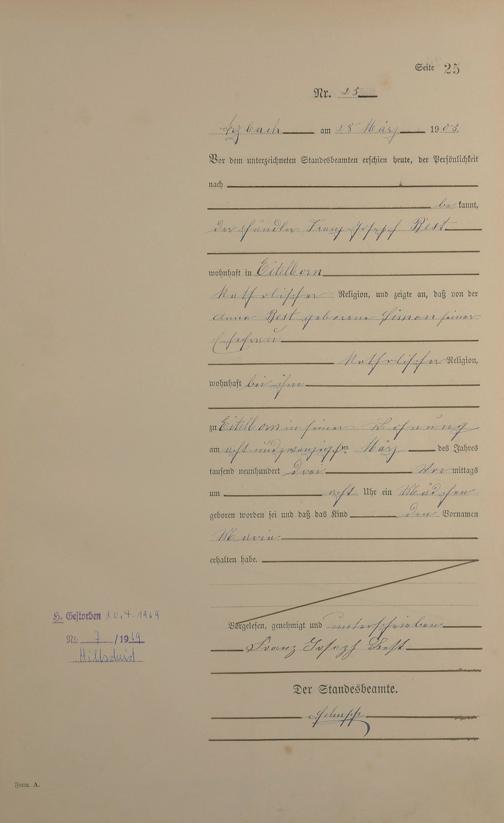 Seite 25
Nr. 25
Arzbach am 28 März 1903.
Vor dem unterzeichneten Standesbeamten erschien heute, der Persönlichkeit
nach
be kannt,
der Händler Franz Josef Best
wohnhaft in Eitelborn
Katholischer Religion, und zeigte an, daß von der
Anna Best geborene Simon seiner
Ehefrau
Katholischer Religion,
wohnhaft bei ihm
zu Eitelborn in seiner Wohnung
am acht und zwanzigsten März des Jahres
tausend neunhundert drei Vor mittags
um acht Uhr ein Mädchen
geboren worden sei und daß das Kind den Vornamen
Maria
erhalten habe.
Vorgelesen, genehmigt und unterschrieben
Franz Joseph Best
Der Standesbeamte.
H. Gestorben 10.4.1969
No 7 /1969
Hillscheid
Form. A.